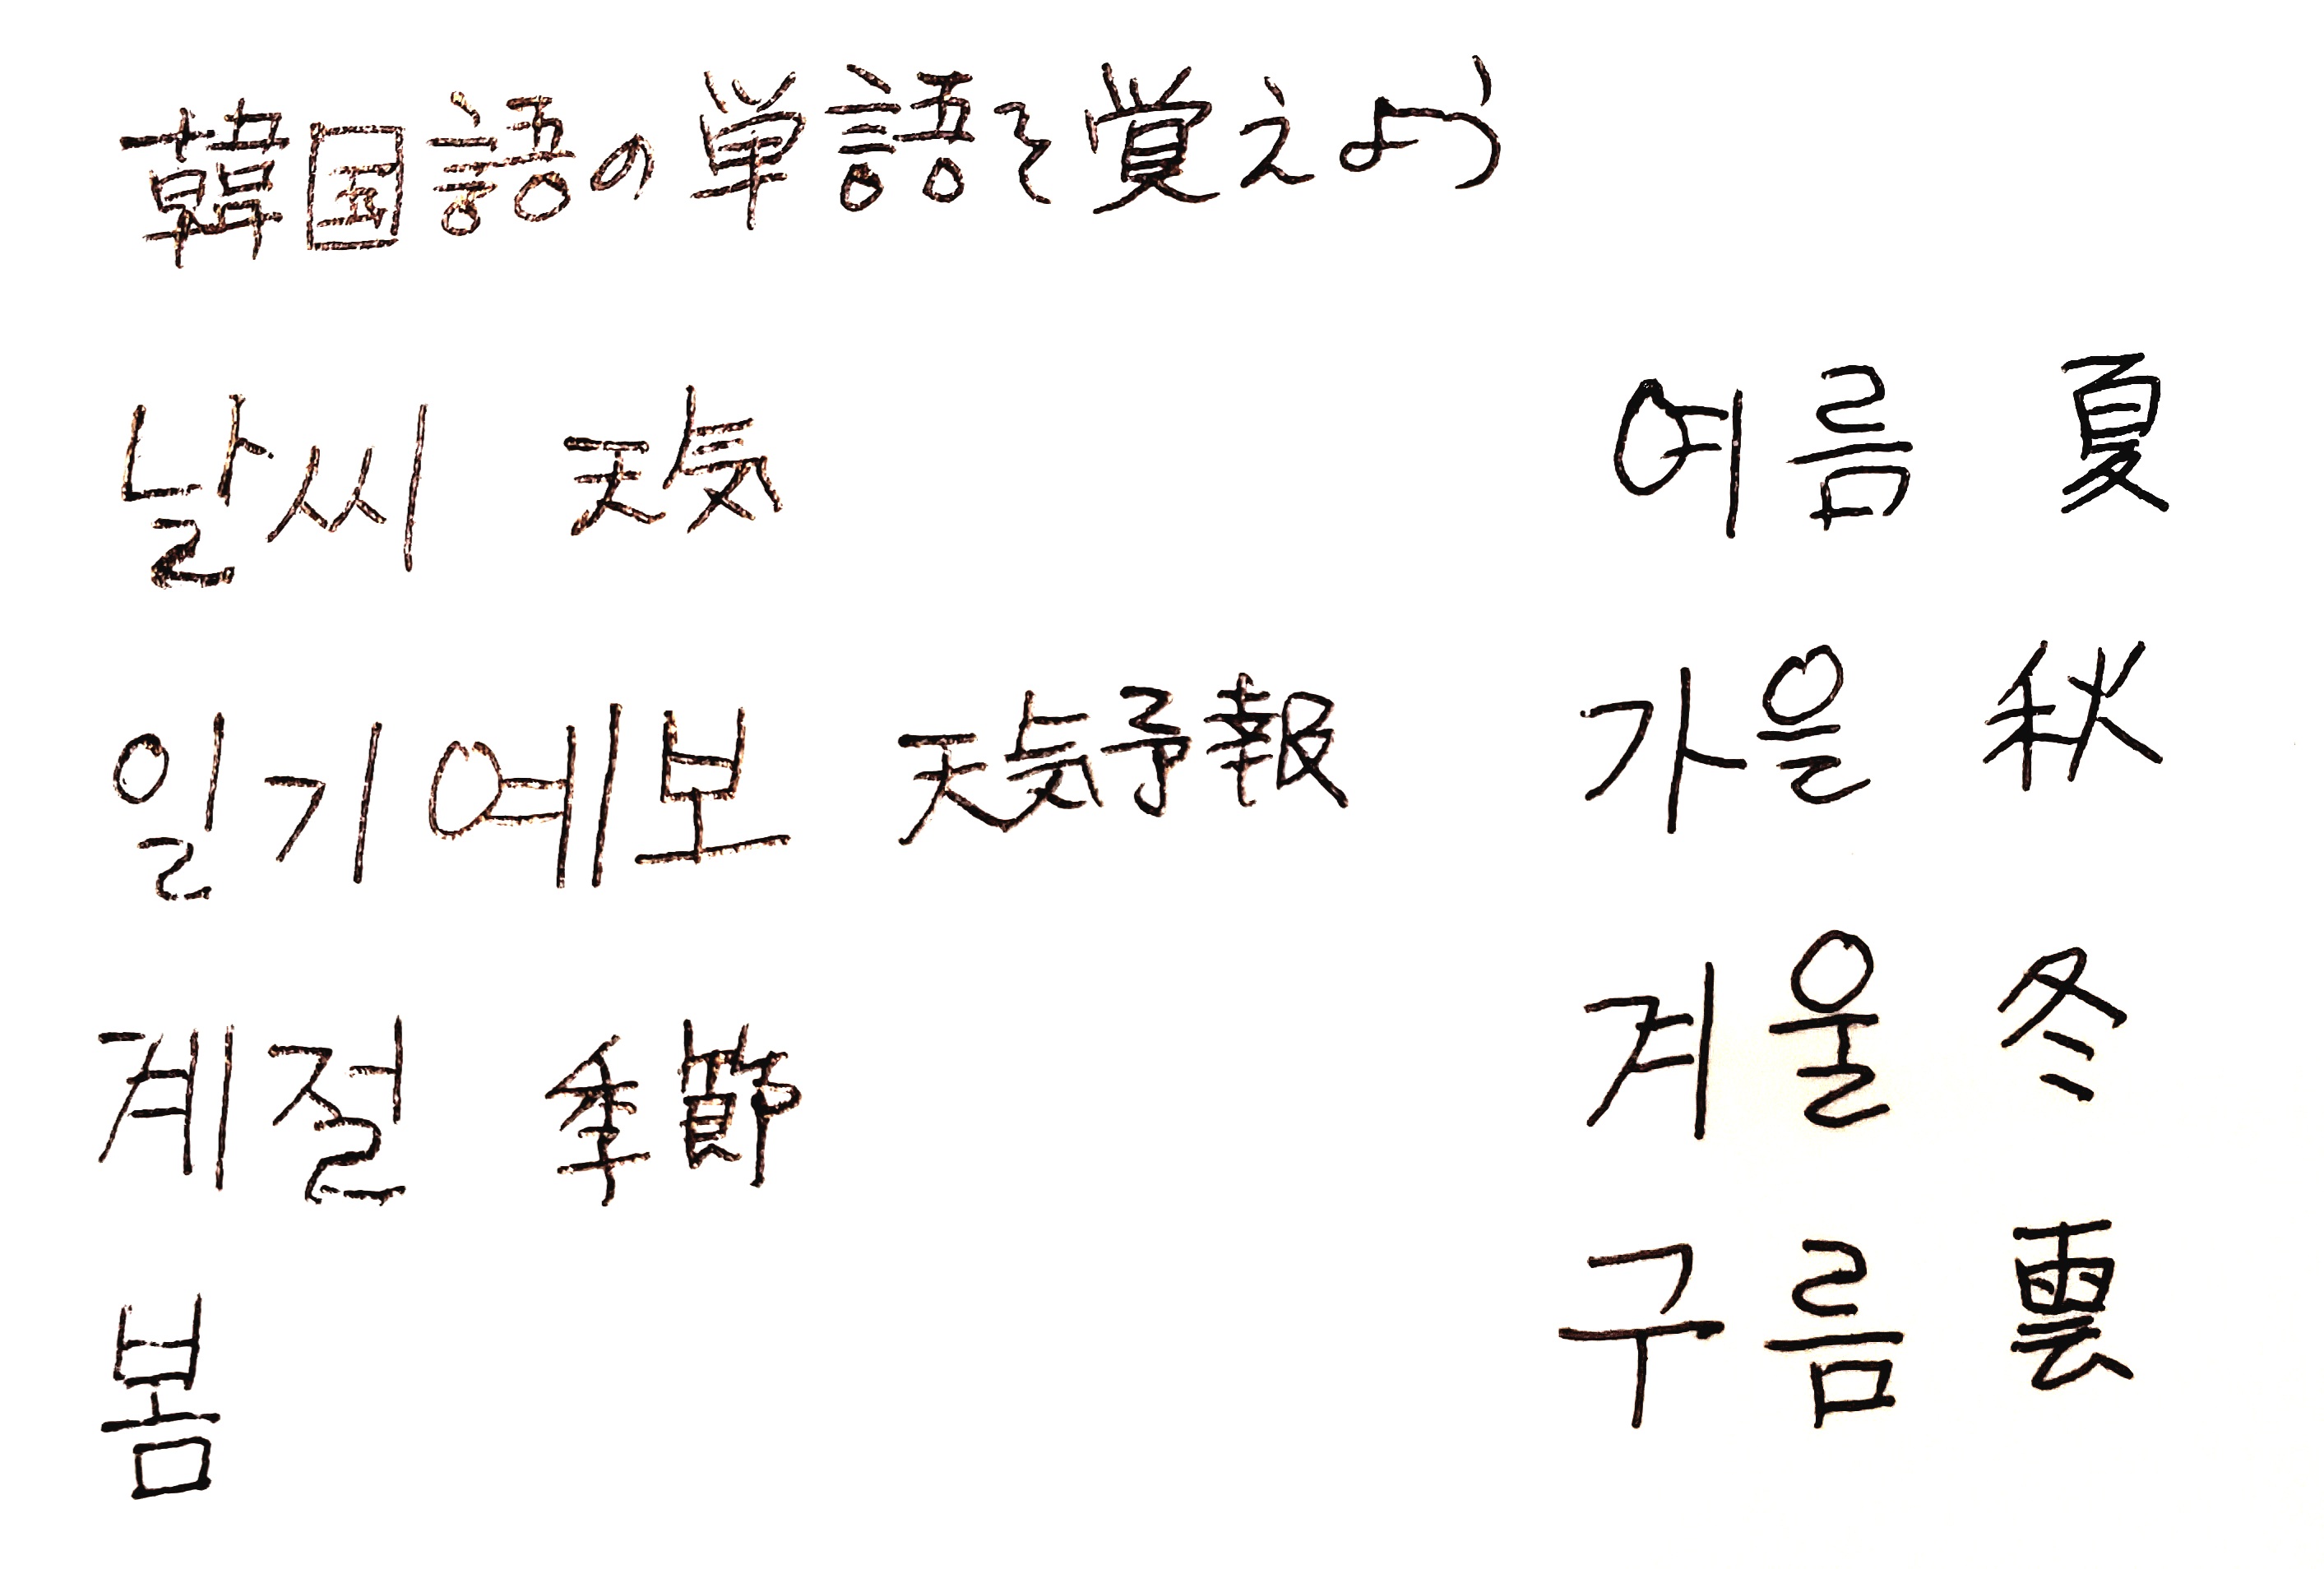 韓国語の単語を覚えよう
날씨 天気
일기예보 天気予報
계절 季節
봄
여름 夏
가을 秋
겨울 冬
구름 雲